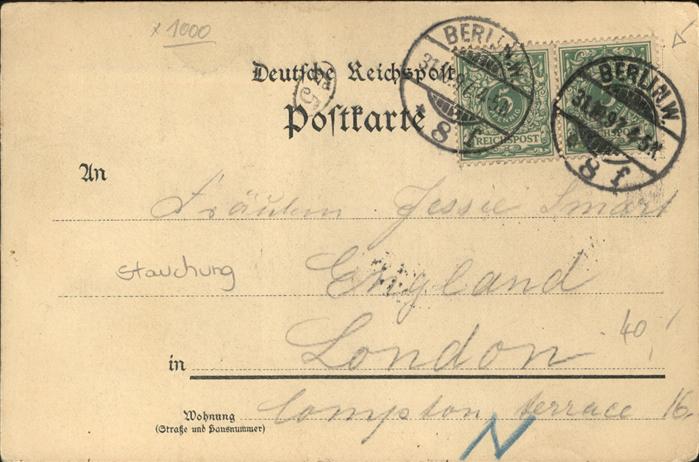 x 1000
Deutsche Reichspost
Postkarte
BERLIN.W.
8 f
5
PFENNIG
REICHSPOST
BERLIN.W.
8 f
An
Fräulein Jessie Smart
Stauchung
England
40,
in London
Wohnung
(Straße und Hausnummer)
Compton terrace 16.